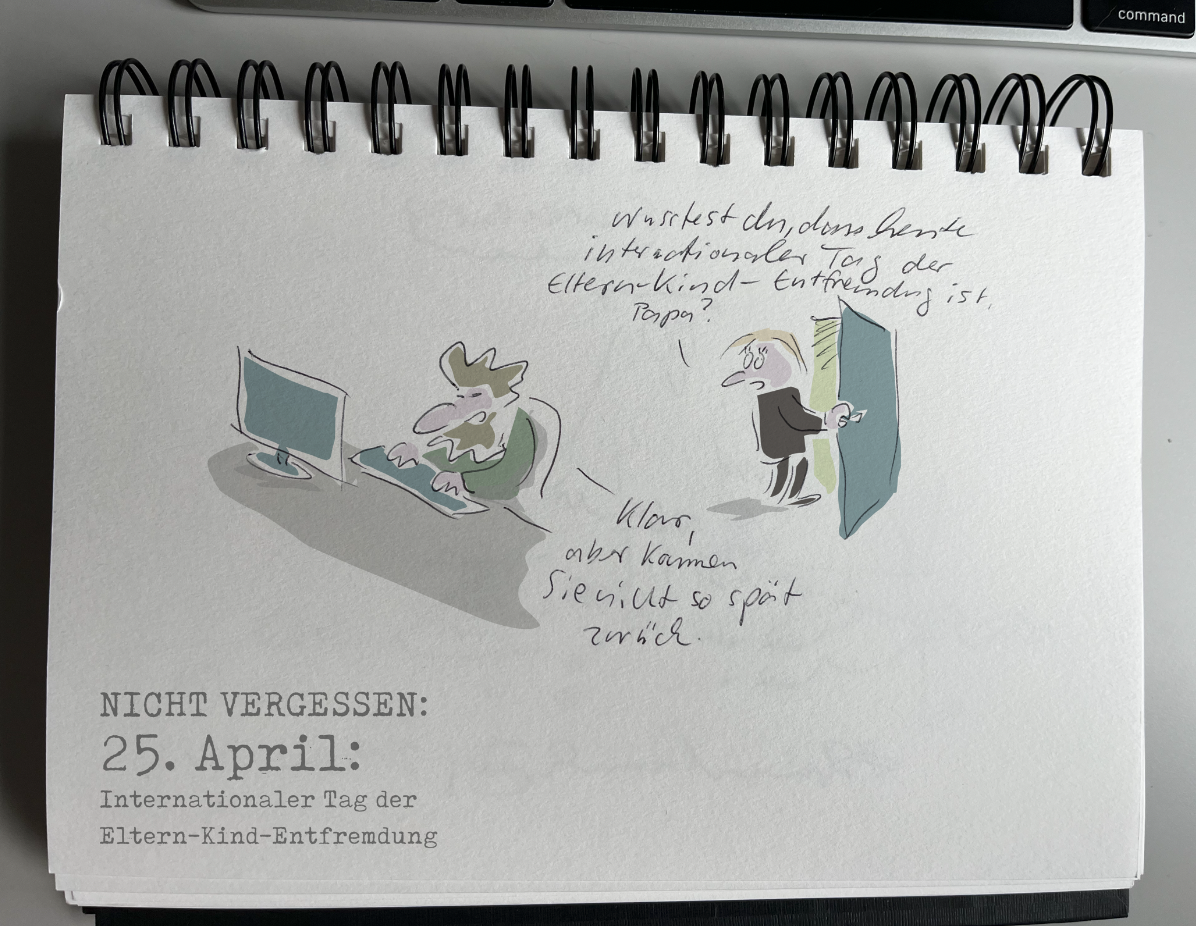 command
Wusstest du, dass heute
internationaler Tag der
Eltern-Kind-Entfremdung ist,
Papa?
Klar,
aber kommen
Sie nicht so spät
zurück.
NICHT VERGESSEN:
25. April:
Internationaler Tag der
Eltern-Kind-Entfremdung